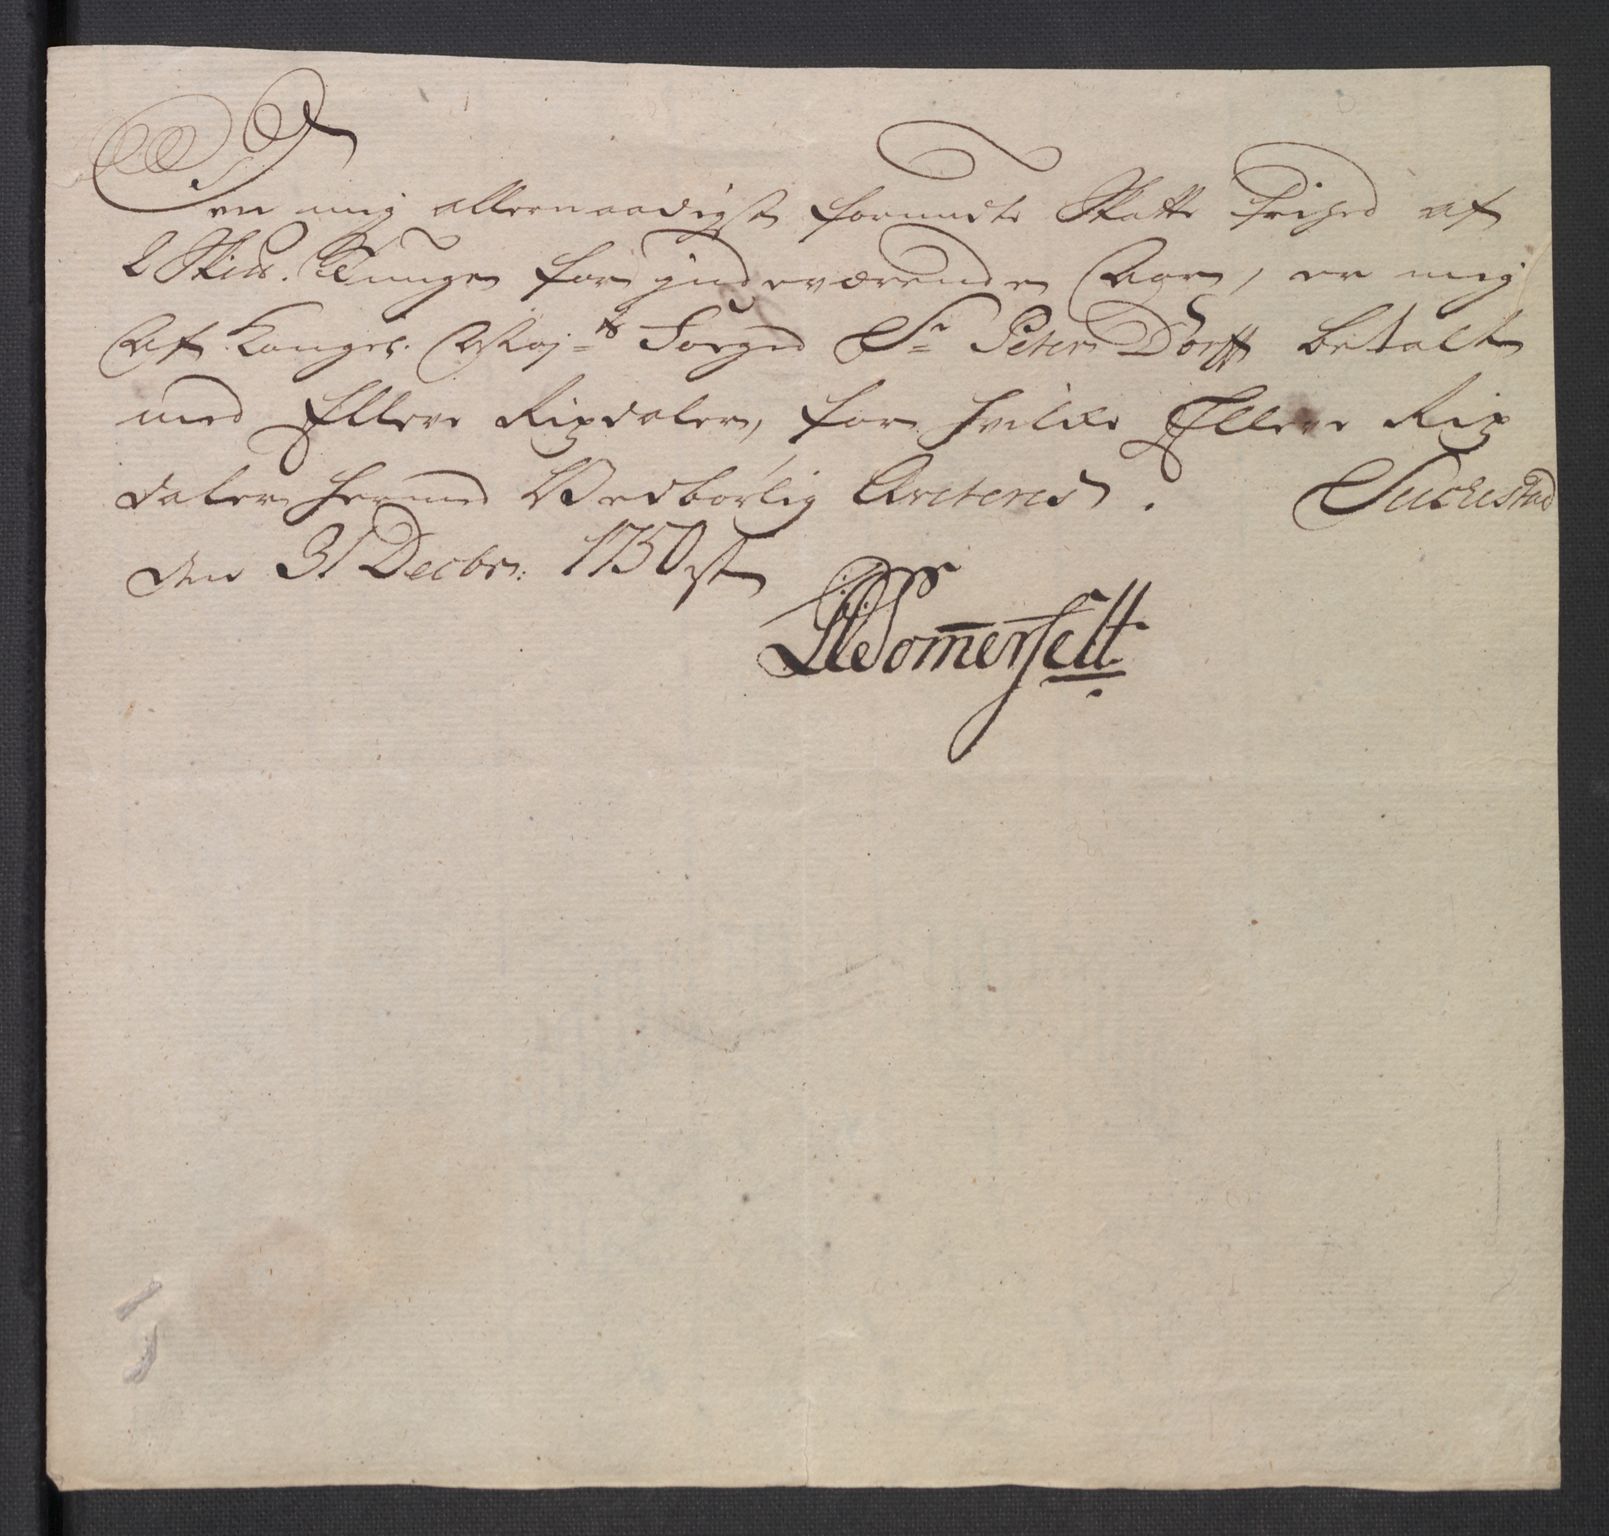 Den mig allernaadigst forundte Skatte Frihed af
2 Skips. Tunge for indeværende Aar, er mig
Af Kongel. Maj-ts Foged Sr Peter Dorff betalt
med Elleve Rixdaler, for hvilke Elleve Rix
daler hermed Vedbørlig Qviteres. Suckestad
den 31 Decbr: 1750st
Somerfeltt